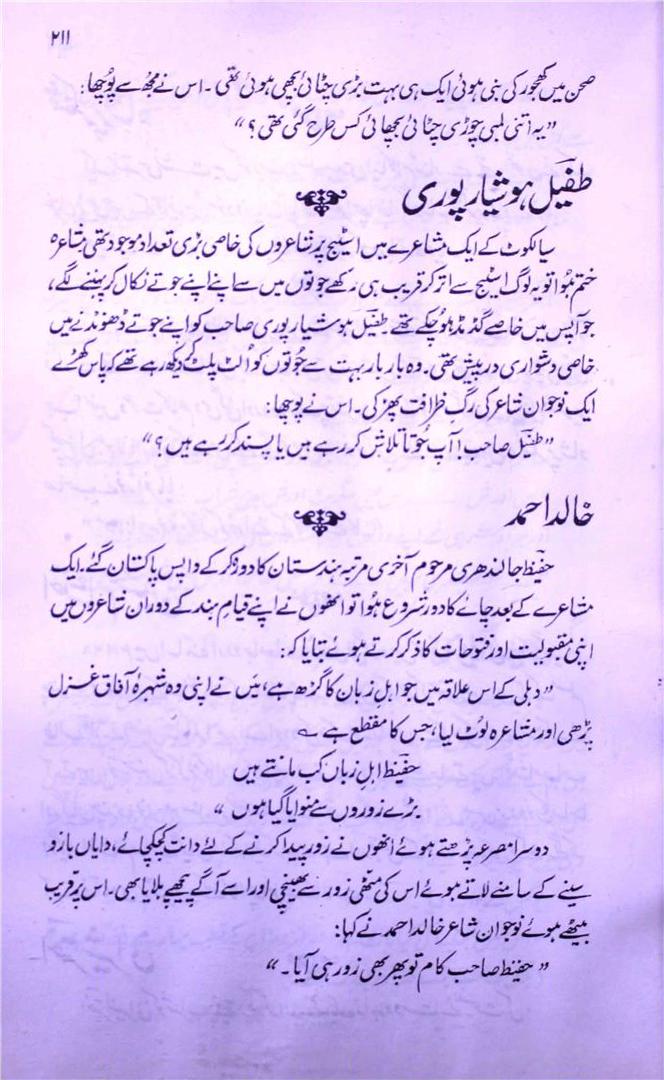 ۲۱۱
صحن میں کھجور کی بنی ہوئی ایک ہی بہت بڑی چٹائی بچھی ہوئی تھی۔ اس نے مجھ سے پوچھا:
”یہ اتنی لمبی چوڑی چٹائی بچھائی کس طرح گئی تھی؟“
طفیل ہوشیارپوری
سیالکوٹ کے ایک مشاعرے میں اسٹیج پر شاعروں کی خاصی بڑی تعداد موجود تھی، مشاعرہ
ختم ہوا تو یہ لوگ اسٹیج سے اتر کر قریب ہی رکھے جوتوں میں سے اپنے اپنے جوتے نکال کر پہننے لگے،
جو آپس میں خاصے گڈمڈ ہو چکے تھے۔ طفیل ہوشیارپوری صاحب کو اپنے جوتے ڈھونڈنے میں
خاصی دشواری درپیش تھی۔ وہ بار بار بہت سے جُوتوں کو اُلٹ پلٹ کے دیکھ رہے تھے کہ پاس کھڑے
ایک نوجوان شاعر کی رگِ ظرافت پھڑکی۔ اس نے پوچھا:
”طفیل صاحب! آپ جُوتا تلاش کر رہے ہیں یا پسند کر رہے ہیں؟“
خالد احمد
حفیظ جالندھری مرحوم آخری مرتبہ ہندستان کا دورہ کر کے واپس پاکستان گئے۔ ایک
مشاعرے کے بعد چائے کا دور شروع ہُوا تو انھوں نے اپنے قیامِ ہند کے دوران مشاعروں میں
اپنی مقبولیت اور فتوحات کا ذکر کرتے ہوئے بتایا کہ:
”دہلی کے اس علاقہ میں جو اہلِ زبان کا گڑھ ہے، میں نے اپنی وہ شہرۂ آفاق غزل
پڑھی اور مشاعرہ لُوٹ لیا، جس کا مقطع ہے ؎
حفیظ اہلِ زباں کب مانتے ہیں
بڑے زوروں سے منوایا گیا ہوں“
دوسرا مصرعہ پڑھتے ہوئے انھوں نے زور پیدا کرنے کے لئے دانت کچکچائے، دایاں بازو
سینے کے سامنے لاتے ہوئے اس کی مٹھی زور سے بھینچی اور اسے آگے پیچھے ہلایا بھی۔ اس پر قریب
بیٹھے ہوئے نوجوان شاعر خالد احمد نے کہا:
”حفیظ صاحب کام تو پھر بھی زور ہی آیا۔“